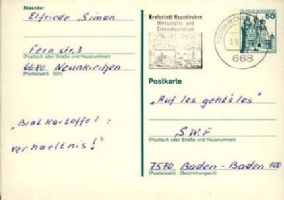 Absender
Elfriede Simon
Fernstr. 3
(Postfach oder Straße und Hausnummer)
6680 Neunkirchen
(Postleitzahl) (Ort)
"Bratkartoffel-
verhaeltnis!"
Kreisstadt Neunkirchen
Wirtschafts- und
Einkaufszentrum
668
50
Postkarte
"Auf los geht's los"
S.W.F
(Postfach oder Straße und Hausnummer)
7570 Baden-Baden 100
(Postleitzahl) (Bestimmungsort)